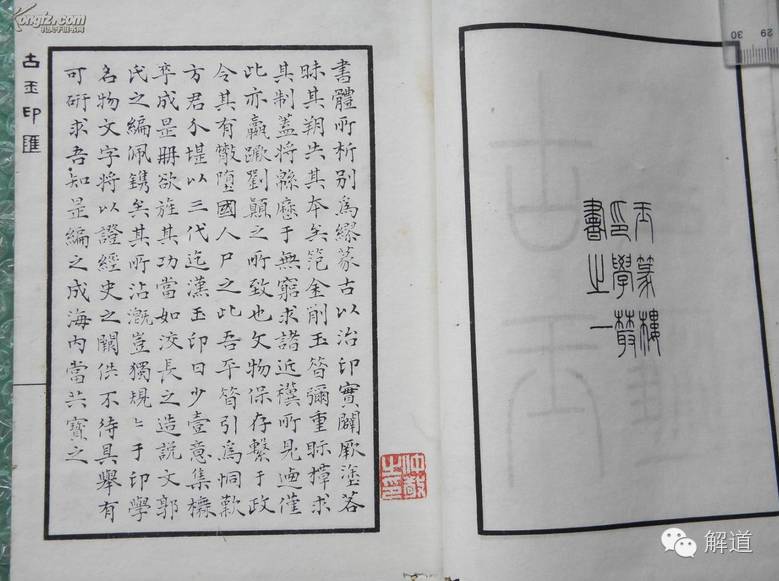 玉篆樓
印學叢
書之一
書體所析別爲繆篆古以治印實闢厥塗
昧其朔失其本矣笵金削玉彌重眎求
其制蓋將緜歷于無窮求諸近禩所見迺僅
此亦嬴蹶劉顛之所致也文物保存繫于政
令其有墮國人尸之此吾平引爲恫歎
方君介堪以三代迄漢玉印日少壹意集
卒成是冊欲旌其功當如洨長之造說文郭
氏之編佩鐫矣其所沾漑豈獨規〻于印學
名物文字將以證經史之闕佚不待具舉有
可研求吾知是編之成海內當共寶之
古玉印匯
kongfz.com
30 29
解道